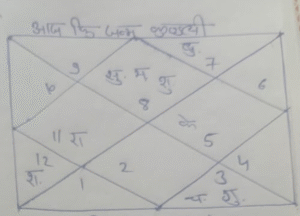 आप कि जन्म कुण्डली
बु.
9 शु. म 7
शु
6
8
11 रा के
5
12 2 4
श. 1 3